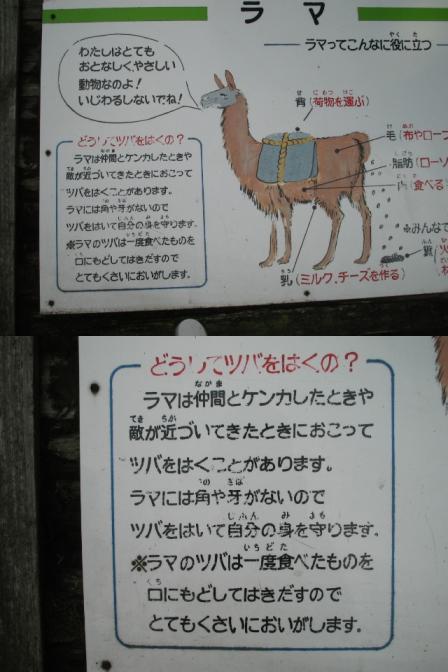 ラマ
ラマってこんなに役に立つ
わたしはとても
おとなしくやさしい
動物なのよ!
いじわるしないでね!
背(荷物を運ぶ)
毛(布やロープ
脂肪(ローソ
肉(食べる)
※みんなで
糞(火
乳(ミルク、チーズを作る)
どうしてツバをはくの?
ラマは仲間とケンカしたときや
敵が近づいてきたときにおこって
ツバをはくことがあります。
ラマには角や牙がないので
ツバをはいて自分の身を守ります。
※ラマのツバは一度食べたものを
口にもどしてはきだすので
とてもくさいにおいがします。
どうしてツバをはくの?
ラマは仲間とケンカしたときや
敵が近づいてきたときにおこって
ツバをはくことがあります。
ラマには角や牙がないので
ツバをはいて自分の身を守ります。
※ラマのツバは一度食べたものを
口にもどしてはきだすので
とてもくさいにおいがします。